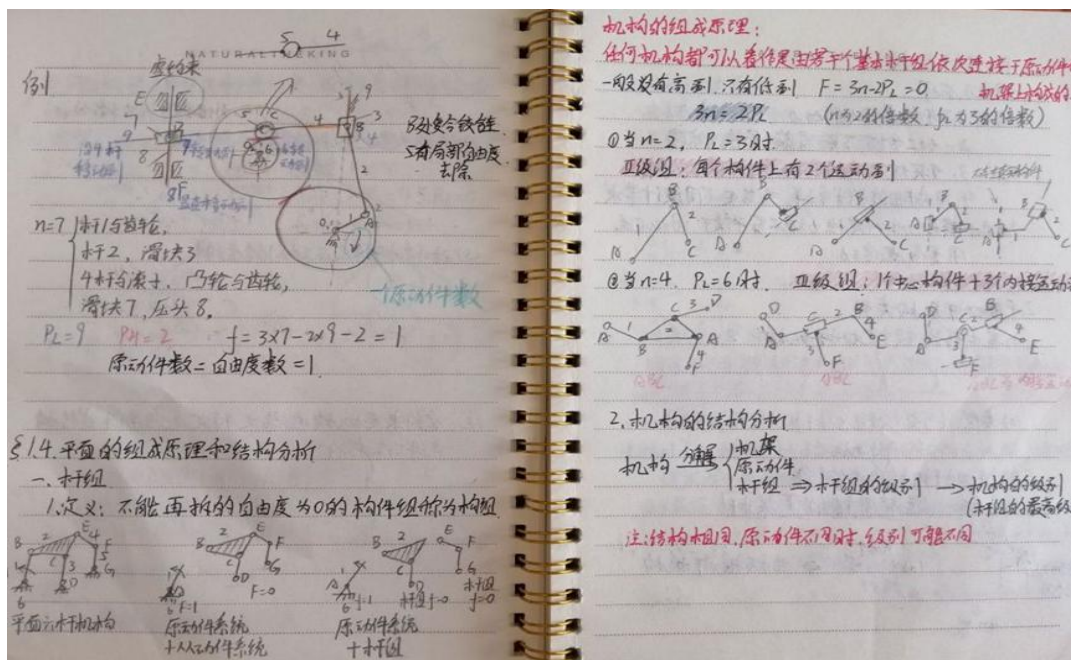 NATURAL KING
例
虚约束
B处复合铰链
5有局部自由度
去除
n=7
杆1与齿轮,
杆2, 滑块3
4杆与滚子, 凸轮与齿轮,
滑块7, 压头8.
一个原动件数
PL=9 PH=2 f=3×7-2×9-2=1
原动件数=自由度数=1.
§1.4.平面的组成原理和结构分析
一、杆组
1.定义: 不能再拆的自由度为0的构件组称为构组
F=1
F=0
f=1
杆组f=0
杆组
f=0
平面六杆机构
原动件系统
+从动件系统
原动件系统
+杆组
机构的组成原理:
任何机构都可以看作是由若干个基本杆组依次连接于原动件
机架上构成的
一般没有高副,只有低副 F=3n-2PL=0.
3n=2PL (n为2的倍数 PL为3的倍数)
①当n=2, PL=3时.
Ⅱ级组: 每个构件上有2个运动副
②当n=4. PL=6时. Ⅲ级组: 1个中心构件+3个内接运动
2.机构的结构分析
机构 分解
机架
原动件
杆组 ⇒ 杆组的级别 → 机构的级别
(杆组的最高级
注:结构相同,原动件不同时,级别可能不同